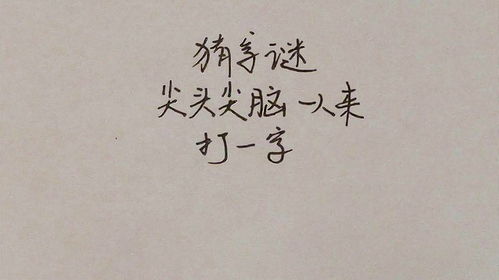 猜字谜
尖头尖脑一人来
打一字